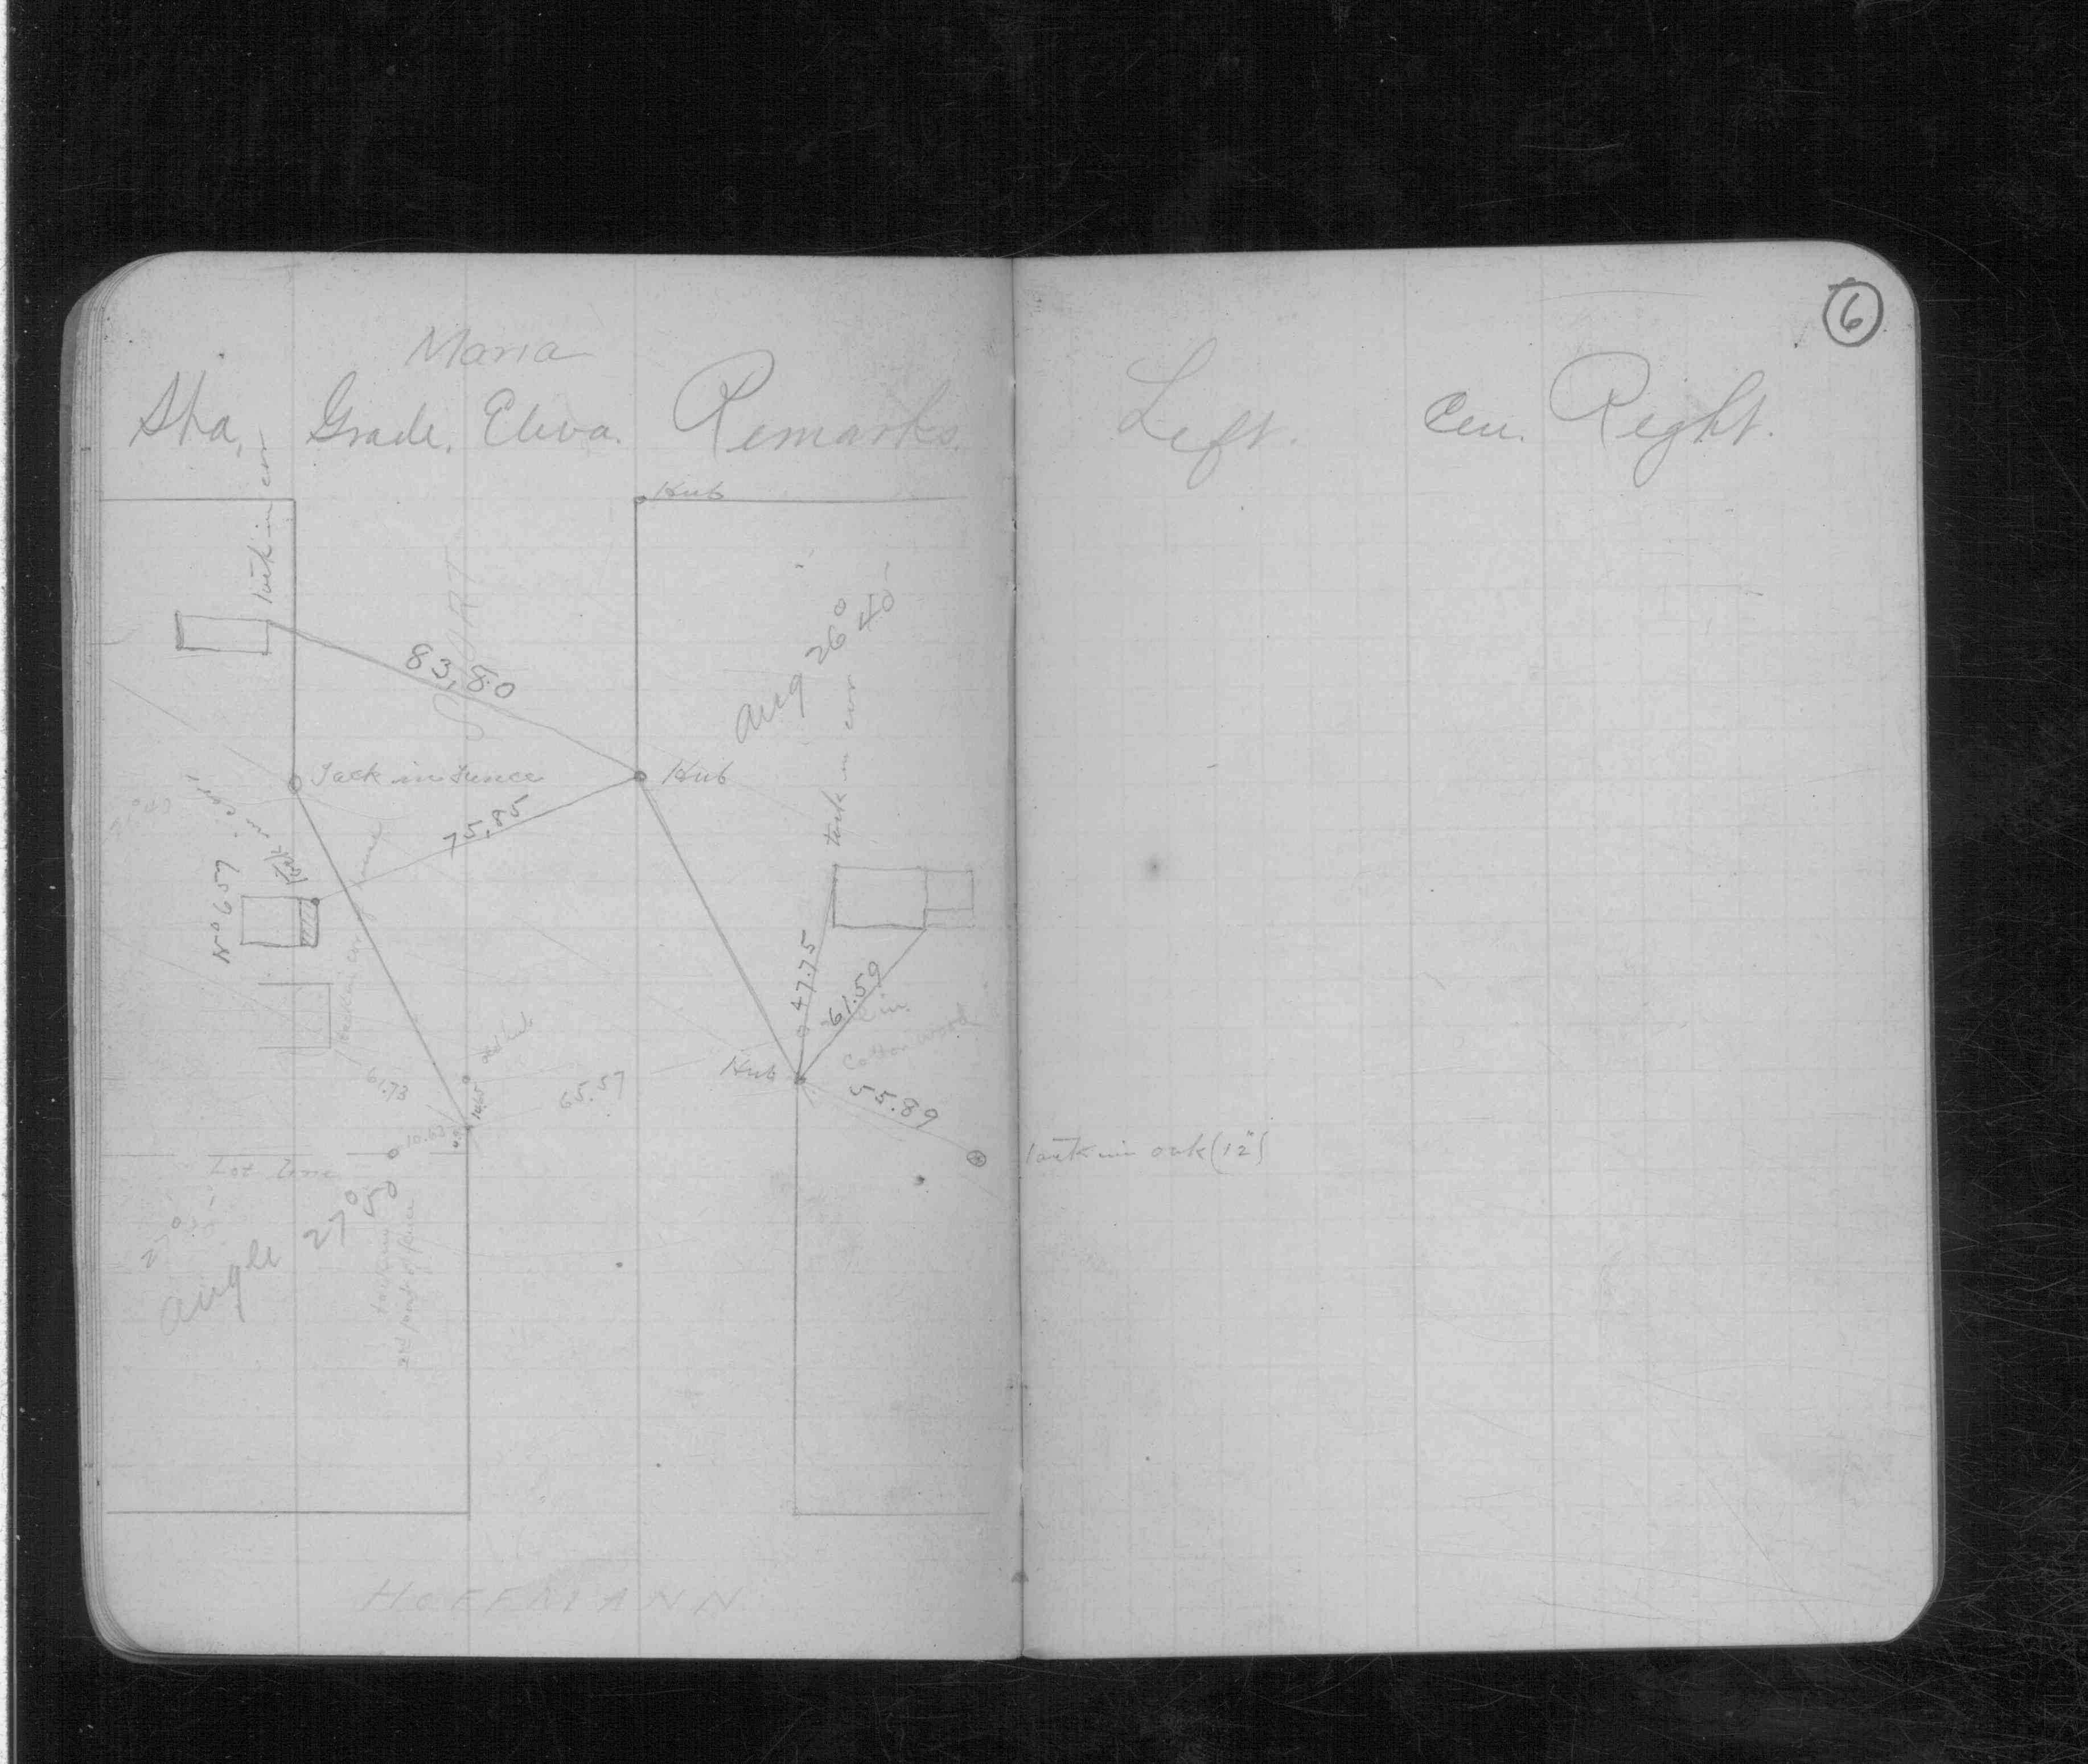 6
Maria
Sta. Grade. Eleva. Remarks. Left. Cen. Right.
Hub
tack in cor
83,80
ang 26° 40'
tack in cor
Tack in fence
Hub
75,85
No 657
tack in cor
47.75
61.59
Cottonwood
old hub
Hub
61.73
65.57
55.89
10.63
tack in oak (12")
Lot line
27° 50'
27°
angle
tack in
2nd post of fence
HOFFMANN